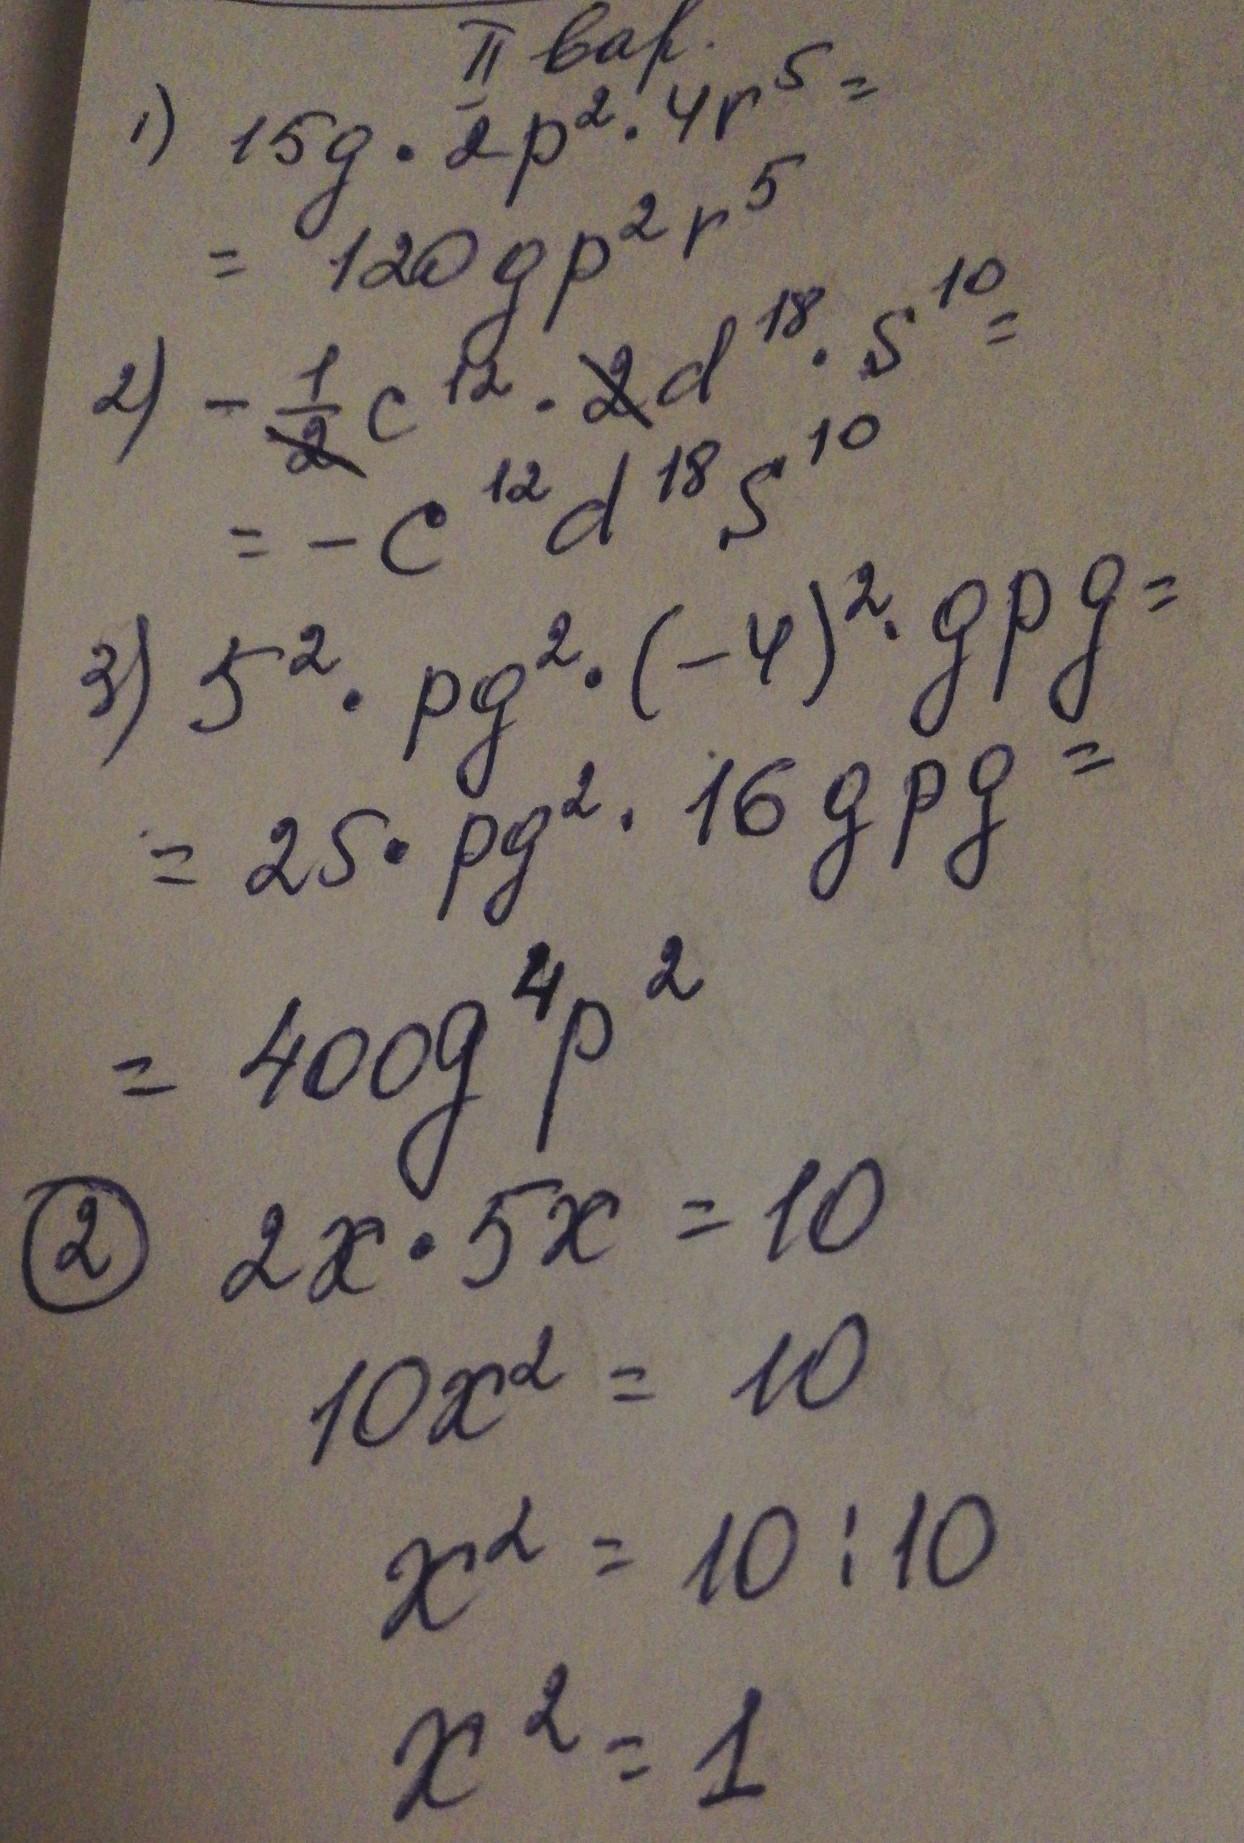 II вар.
1) 15g · 2p² · 4r⁵ =
= 120gp²r⁵
2) - 1/2 c¹² · 2d¹⁸ · s¹⁰ =
= - c¹²d¹⁸s¹⁰
3) 5² · pg² · (-4)² · gpg =
= 25 · pg² · 16gpg =
= 400g⁴p²
② 2x · 5x = 10
10x² = 10
x² = 10 : 10
x² = 1